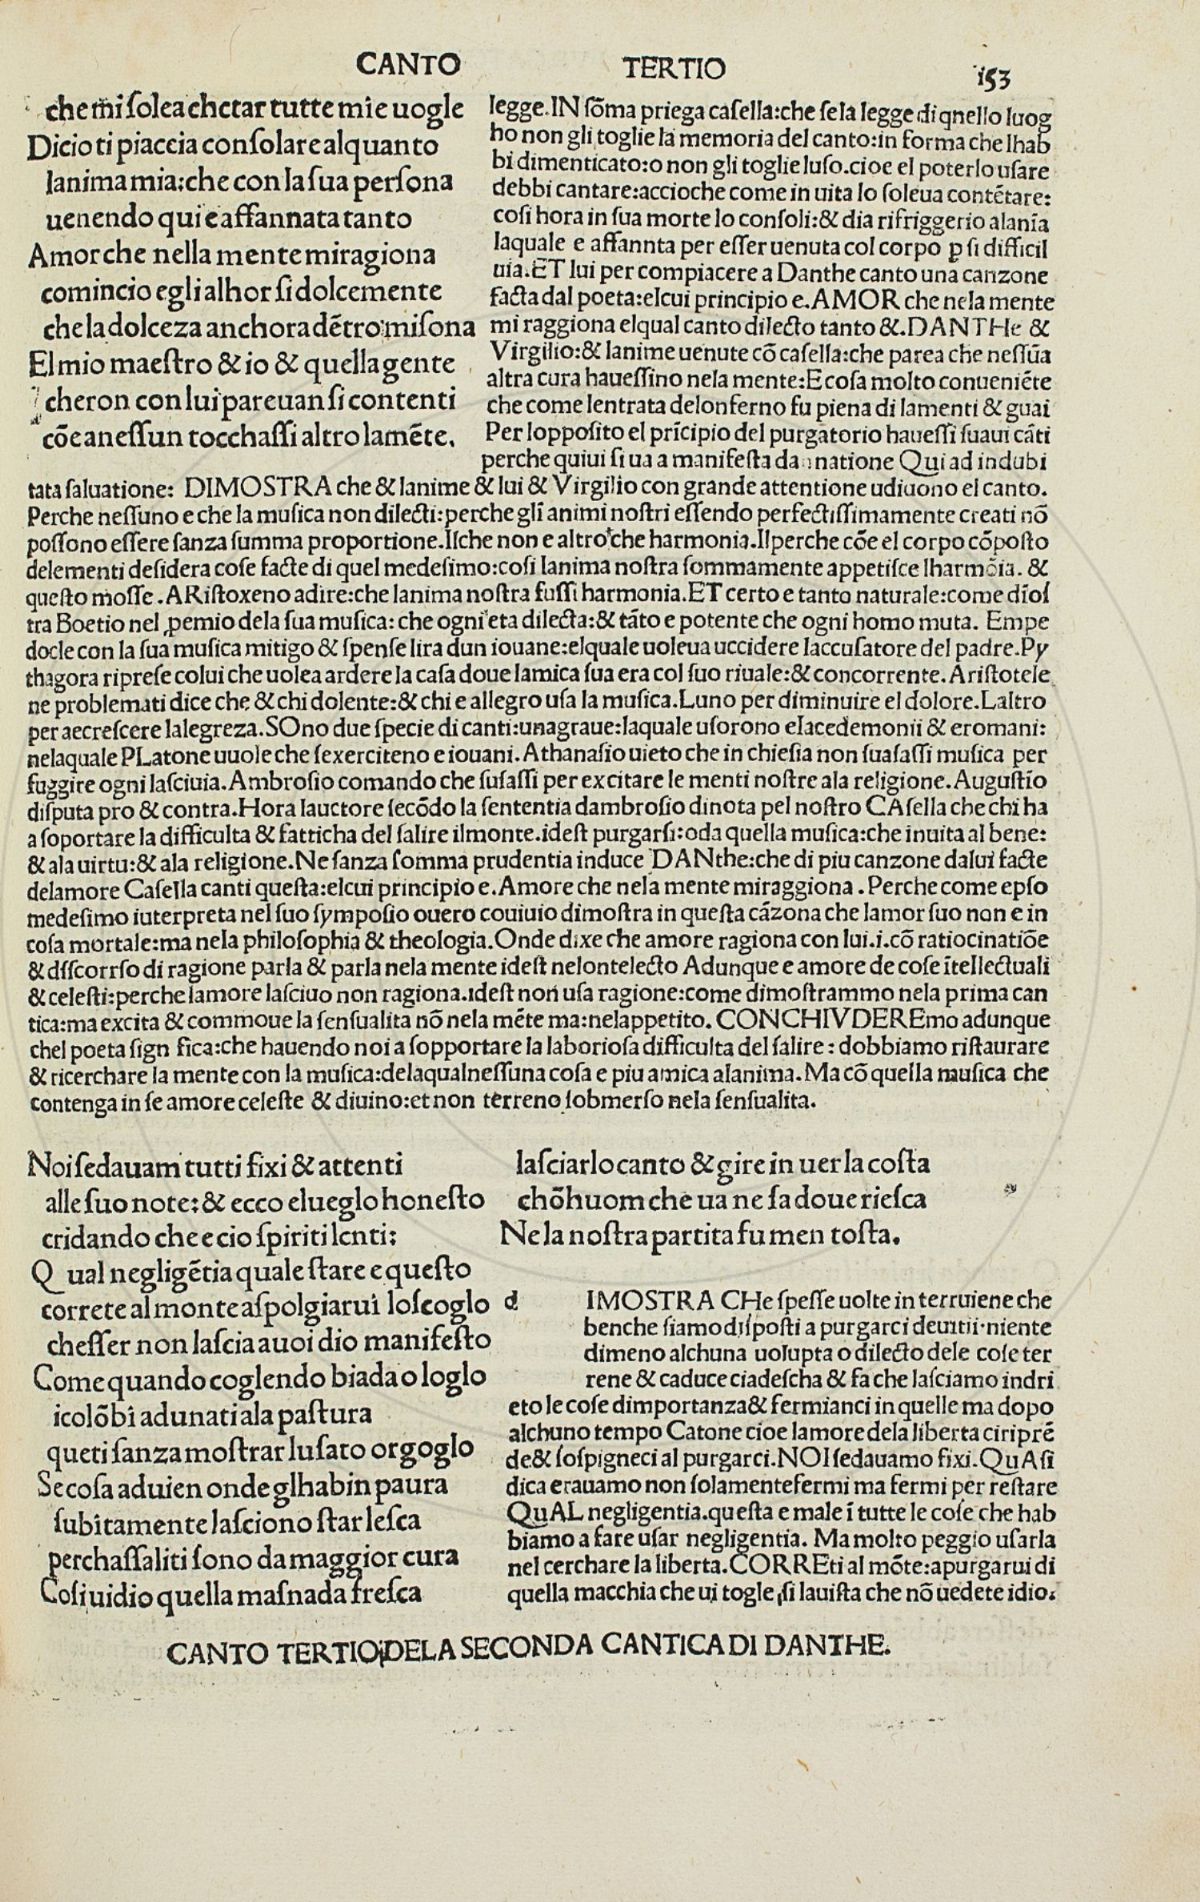 CANTO TERTIO 153
che mi ſolea chetar tutte mie uogle
Dicio ti piaccia conſolare alquanto
lanima mia: che con la ſua perſona
uenendo qui e affannata tanto
Amor che nella mente miragiona
comincio egli alhor ſi dolcemente
che la dolceza anchora dẽtro miſona
El mio maeſtro & io & quella gente
cheron con lui pareuan ſi contenti
cõe a neſſun tocchaſſi altro la mẽte.
legge. IN ſõma priega caſella: che ſe la legge di qnello luog
ho non gli toglie la memoria del canto: in forma che lhab
bi dimenticato: o non gli toglie luſo. cioe el poterlo uſare
debbi cantare: accioche come in uita lo ſoleua contẽtare:
coſi hora in ſua morte lo conſoli: & dia rifriggerio alania
laquale e affannta per eſſer uenuta col corpo ꝑ ſi difficil
uia. ET lui per compiacere a Danthe canto una canzone
facta dal poeta: elcui principio e. AMOR che nela mente
mi raggiona elqual canto dilecto tanto &. DANTHe &
Virgilio: & lanime uenute cõ caſella: che parea che neſſũa
altra cura haueſſino nela mente: E coſa molto conueniẽte
che come lentrata delonferno fu piena di lamenti & guai
Per loppoſito el prĩcipio del purgatorio haueſſi ſuaui cãti
perche quiui ſi ua a manifeſta da natione Qui ad indubi
tata ſaluatione: DIMOSTRA che & lanime & lui & Virgilio con grande attentione udiuono el canto.
Perche neſſuno e che la muſica non dilecti: perche gli animi noſtri eſſendo perfectiſſimamente creati nõ
poſſono eſſere ſanza ſumma proportione. Ilche non e altro che harmonia. Ilperche cõe el corpo cõpoſto
delementi deſidera coſe facte di quel medeſimo: coſi lanima noſtra ſommamente appetiſce lharmõia. &
queſto moſſe. ARiſtoxeno a dire: che lanima noſtra fuſſi harmonia. ET certo e tanto naturale: come dĩoſ
tra Boetio nel ꝓemio dela ſua muſica: che ogni eta dilecta: & tãto e potente che ogni homo muta. Empe
docle con la ſua muſica mitigo & ſpenſe lira dun iouane: elquale uoleua uccidere laccuſatore del padre. Py
thagora ripreſe colui che uolea ardere la caſa doue lamica ſua era col ſuo riuale: & concorrente. Ariſtotele
ne problemati dice che & chi dolente: & chi e allegro uſa la muſica. Luno per diminuire el dolore. Laltro
per aecreſcere lalegreza. SOno due ſpecie di canti: una graue: laquale uſorono e lacedemonii & e romani:
nelaquale PLatone uuole che ſexerciteno e iouani. Athanaſio uieto che in chieſia non ſuaſaſſi muſica per
fuggire ogni laſciuia. Ambroſio comando che ſuſaſſi per excitare le menti noſtre ala religione. Auguſtio
diſputa pro & contra. Hora lauctore ſecõdo la ſententia dambroſio dinota pel noſtro CAſella che chi ha
a ſoportare la difficulta & fatticha del ſalire il monte. ideſt purgarſi: oda quella muſica: che inuita al bene:
& ala uirtu: & ala religione. Ne ſanza ſomma prudentia induce DANthe: che di piu canzone da lui facte
delamore Caſella canti queſta: elcui principio e. Amore che nela mente miraggiona. Perche come epſo
medeſimo iuterpreta nel ſuo ſympoſio ouero couiuio dimoſtra in queſta cãzona che lamor ſuo non e in
coſa mortale: ma nela philoſophia & theologia. Onde dixe che amore ragiona con lui. i. cõ ratiocinatiõe
& dſſcorrſo di ragione parla & parla nela mente ideſt nelontelecto Adunque e amore de coſe ĩtellectuali
& celeſti: perche lamore laſciuo non ragiona. ideſt non uſa ragione: come dimoſtrammo nela prima can
tica: ma excita & commoue la ſenſualita nõ nela mẽte ma: nelappetito. CONCHIVDEREmo adunque
chel poeta ſign fica: che hauendo noi a ſopportare la laborioſa difficulta del ſalire: dobbiamo riſtaurare
& ricerchare la mente con la muſica: delaqual neſſuna coſa e piu amica alanima. Ma cõ quella muſica che
contenga in ſe amore celeſte & diuino: et non terreno ſobmerſo nela ſenſualita.
Noi ſedauam tutti fixi & attenti
alle ſuo note: & ecco el ueglo honeſto
cridando che e cio ſpiriti lenti:
Qual negligẽtia quale ſtare e queſto
correte al monte a ſpolgiarui loſcoglo
cheſſer non laſcia a uoi dio manifeſto
Come quando coglendo biada o loglo
i colõbi adunati ala paſtura
queti ſanza moſtrar luſato orgoglo
Se coſa aduien onde glhabin paura
ſubitamente laſciono ſtar leſca
perchaſſaliti ſono da maggior cura
Coſi uidio quella maſnada freſca
laſciar lo canto & gire in uer la coſta
chõ huom che ua ne ſa doue rieſca
Ne la noſtra partita fu men toſta.
d IMOSTRA CHe ſpeſſe uolte in teruiene che
benche ſiamo diſpoſti a purgarci deuitii. niente
dimeno alchuna uolupta o dilecto dele coſe ter
rene & caduce ciadeſcha & fa che laſciamo indri
eto le coſe dimportanza & fermianci in quelle ma dopo
alchuno tempo Catone cioe lamore dela liberta ciriprẽ
de & ſoſpigneci al purgarci. NOI ſedauamo fixi. QuAſi
dica erauamo non ſolamente fermi ma fermi per reſtare
QuAL negligentia. queſta e male ĩ tutte le coſe che hab
biamo a fare uſar negligentia. Ma molto peggio uſarla
nel cerchare la liberta. CORREti al mõte: a purgarui di
quella macchia che ui togle ſi lauiſta che nõ uedete idio.
CANTO TERTIO DELA SECONDA CANTICA DI DANTHE.